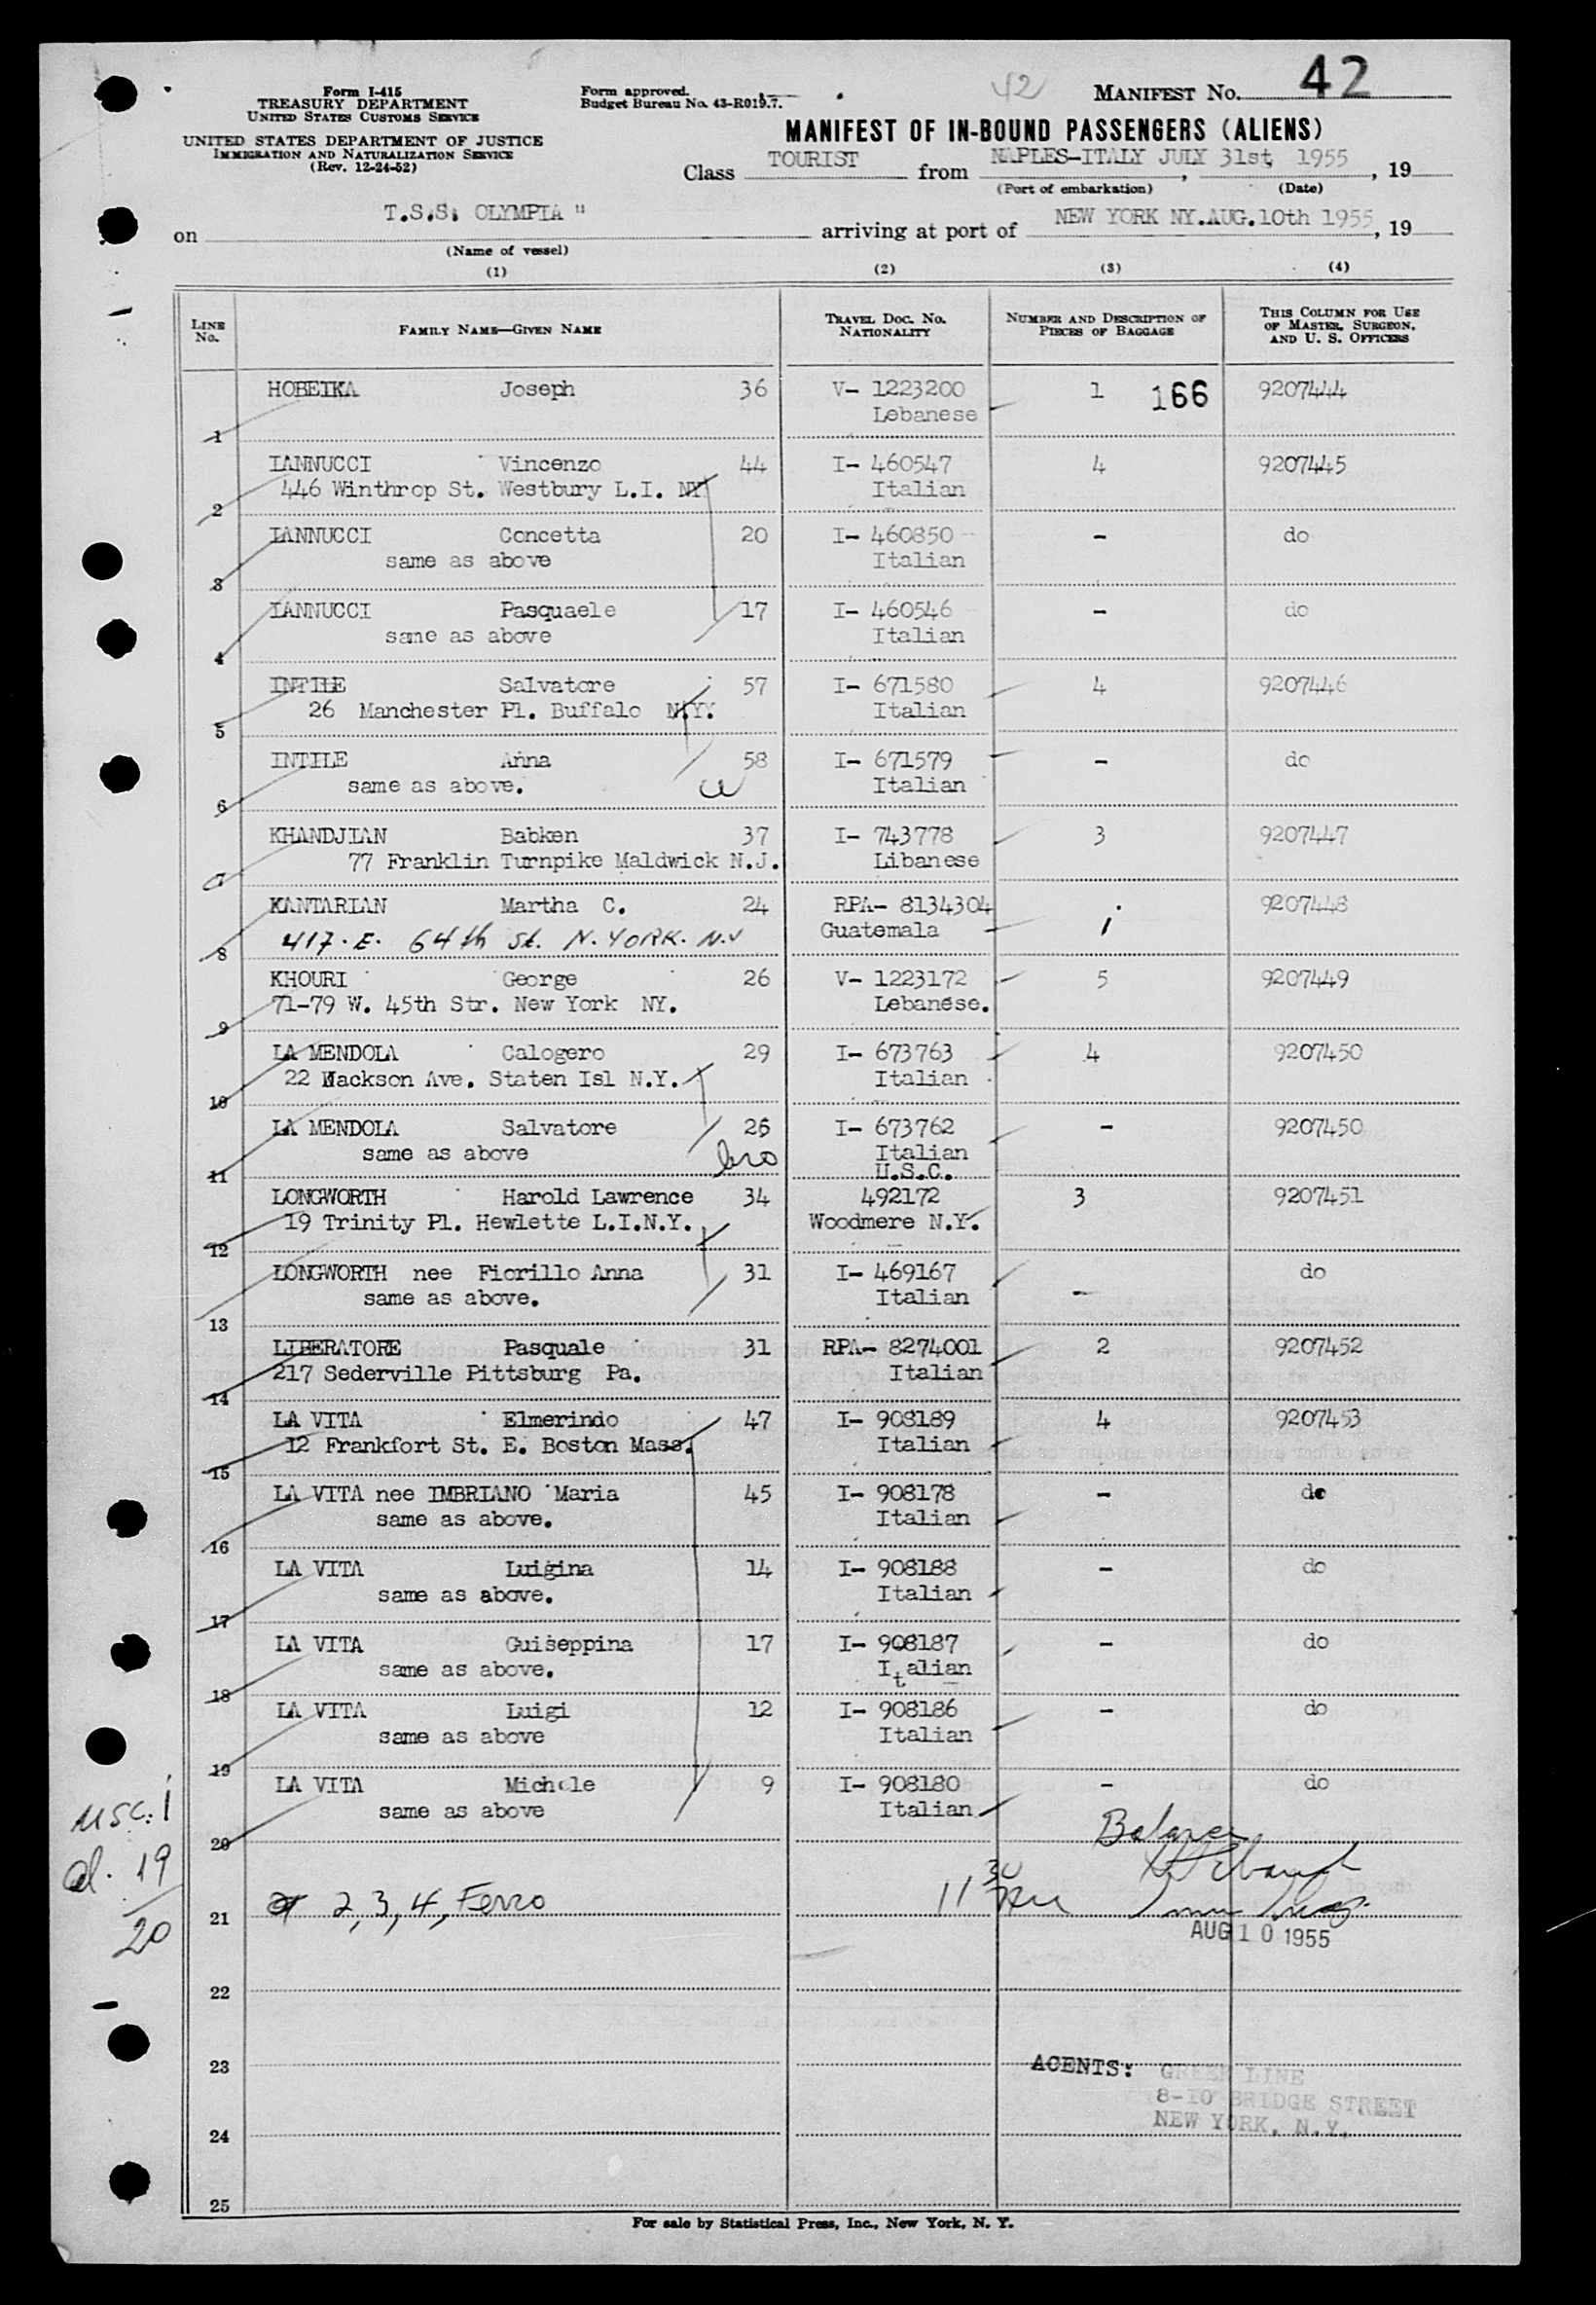 Form I-415
TREASURY DEPARTMENT
UNITED STATES CUSTOMS SERVICE
UNITED STATES DEPARTMENT OF JUSTICE
IMMIGRATION AND NATURALIZATION SERVICE
(Rev. 12-24-52)
Form approved.
Budget Bureau No. 43-R019.7.
42
MANIFEST No. 42
MANIFEST OF IN-BOUND PASSENGERS (ALIENS)
Class TOURIST from NAPLES-ITALY JULY 31st, 1955, 19
(Port of embarkation) (Date)
on T.S.S. OLYMPIA " arriving at port of NEW YORK NY. AUG. 10th 1955, 19
(Name of vessel)
(1) (2) (3) (4)
LINE No. FAMILY NAME—GIVEN NAME TRAVEL DOC. No. NATIONALITY NUMBER AND DESCRIPTION OF PIECES OF BAGGAGE THIS COLUMN FOR USE OF MASTER, SURGEON, AND U. S. OFFICERS
HOBEIKA Joseph 36 V- 1223200 1 166 9207444
1 Lebanese
IANNUCCI Vincenzo 44 I- 460547 4 9207445
446 Winthrop St. Westbury L.I. NY Italian
2
IANNUCCI Concetta 20 I- 460850 - do
same as above Italian
3
IANNUCCI Pasquaele 17 I- 460546 - do
same as above Italian
4
INTILE Salvatore 57 I- 671580 4 9207446
26 Manchester Pl. Buffalo N.Y. Italian
5
INTILE Anna 58 I- 671579 - do
same as above. Italian
6
KHANDJIAN Babken 37 I- 743778 3 9207447
77 Franklin Turnpike Maldwick N.J. Libanese
7
KANTARIAN Martha C. 24 RPA- 8134304 1 9207448
417. E. 64th St. N. YORK. N.Y Guatemala
8
KHOURI George 26 V- 1223172 5 9207449
71-79 W. 45th Str. New York NY. Lebanese.
9
LA MENDOLA Calogero 29 I- 673763 4 9207450
22 Mackson Ave. Staten Isl N.Y. Italian
10
LA MENDOLA Salvatore 26 I- 673762 - 9207450
same as above bro Italian
11 U.S.C.
LONGWORTH Harold Lawrence 34 492172 3 9207451
19 Trinity Pl. Hewlette L.I.N.Y. Woodmere N.Y.
12
LONGWORTH nee Fiorillo Anna 31 I- 469167 - do
same as above. Italian
13
LIBERATORE Pasquale 31 RPA- 8274001 2 9207452
217 Sederville Pittsburg Pa. Italian
14
LA VITA Elmerindo 47 I- 908189 4 9207453
12 Frankfort St. E. Boston Mass. Italian
15
LA VITA nee IMBRIANO Maria 45 I- 908178 - do
same as above. Italian
16
LA VITA Luigina 14 I- 908188 - do
same as above. Italian
17
LA VITA Guiseppina 17 I- 908187 - do
same as above. Italian
18
LA VITA Luigi 12 I- 908186 - do
same as above Italian
19
LA VITA Michele 9 I- 908180 - do
same as above Italian
20
USC. 1
al. 19
20
21 2, 3, 4, Ferro 11 30
AUG 10 1955
22
23
AGENTS: GREEK LINE
8-10 BRIDGE STREET
NEW YORK, N.Y.
24
25
For sale by Statistical Press, Inc., New York, N. Y.